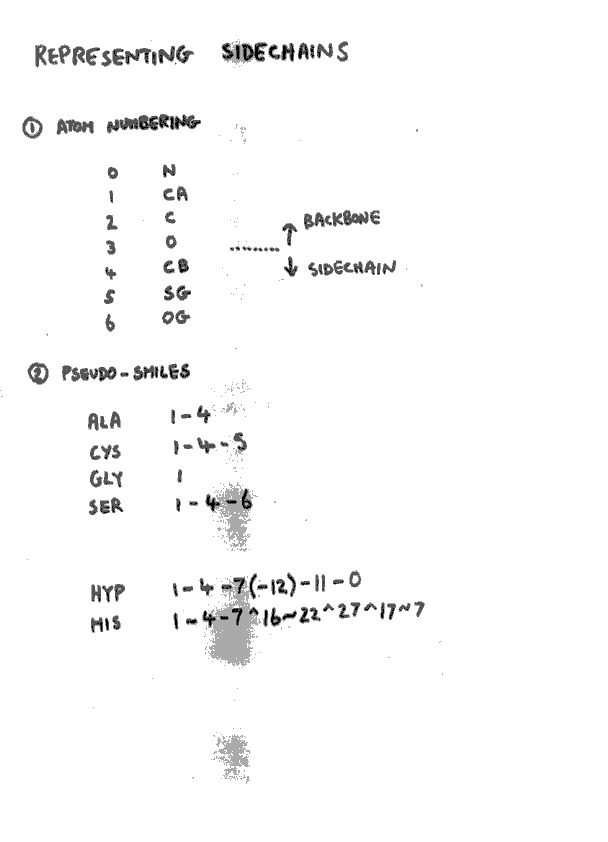 REPRESENTING SIDECHAINS
① ATOM NUMBERING
0 N
1 CA
2 C
3 O
4 CB
5 SG
6 OG
↑ BACKBONE
↓ SIDECHAIN
② PSEUDO-SMILES
ALA 1-4
CYS 1-4-5
GLY 1
SER 1-4-6
HYP 1-4-7(-12)-11-0
HIS 1-4-7^16~22^27^17~7